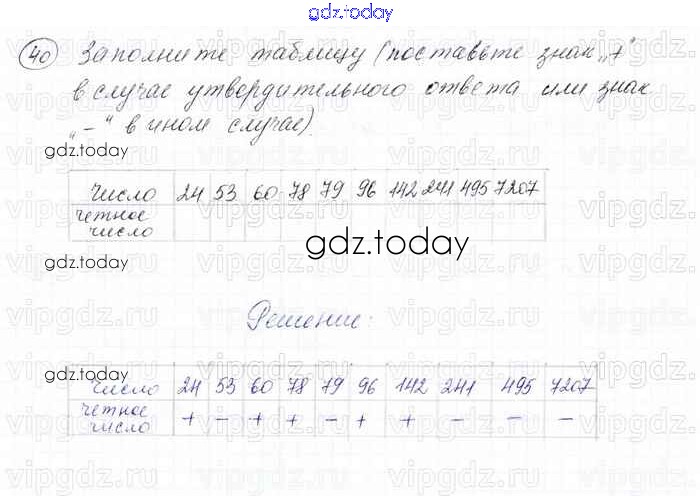 gdz.today
40 Заполните таблицу (поставьте знак „+"
в случае утвердительного ответа или знак
„–" в ином случае).
gdz.today
Число 24 53 60 78 79 96 142 241 495 7207
четное
число
gdz.today
gdz.today
Решение:
gdz.today
Число 24 53 60 78 79 96 142 241 495 7207
четное
число + – + + – + + – – –
vipgdz.ru